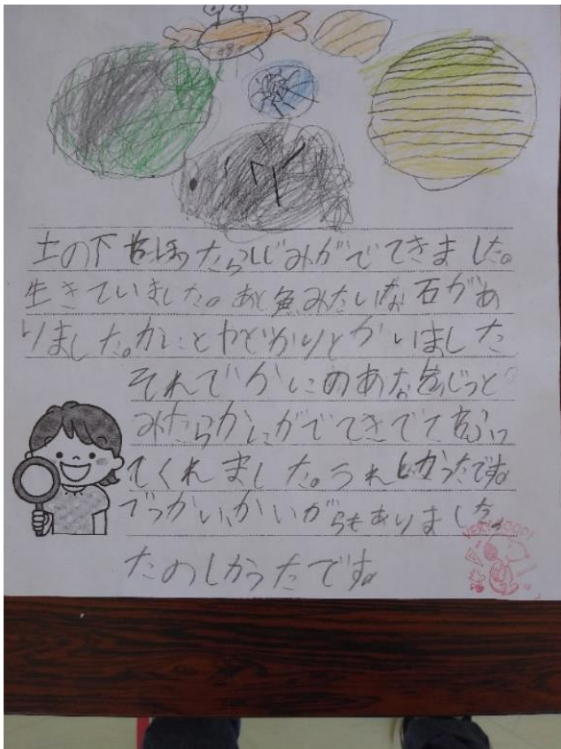 土の下をほったらしじみがでてきました。
生きていました。あと魚みたいな石があ
りました。かにとやどかりとがいました
それでかにのあなをじっと
みたらかにがでてきてて
てくれました。うれしかったです。
でっかいかいがらもありました。
たのしかったです。
VERY GOOD!